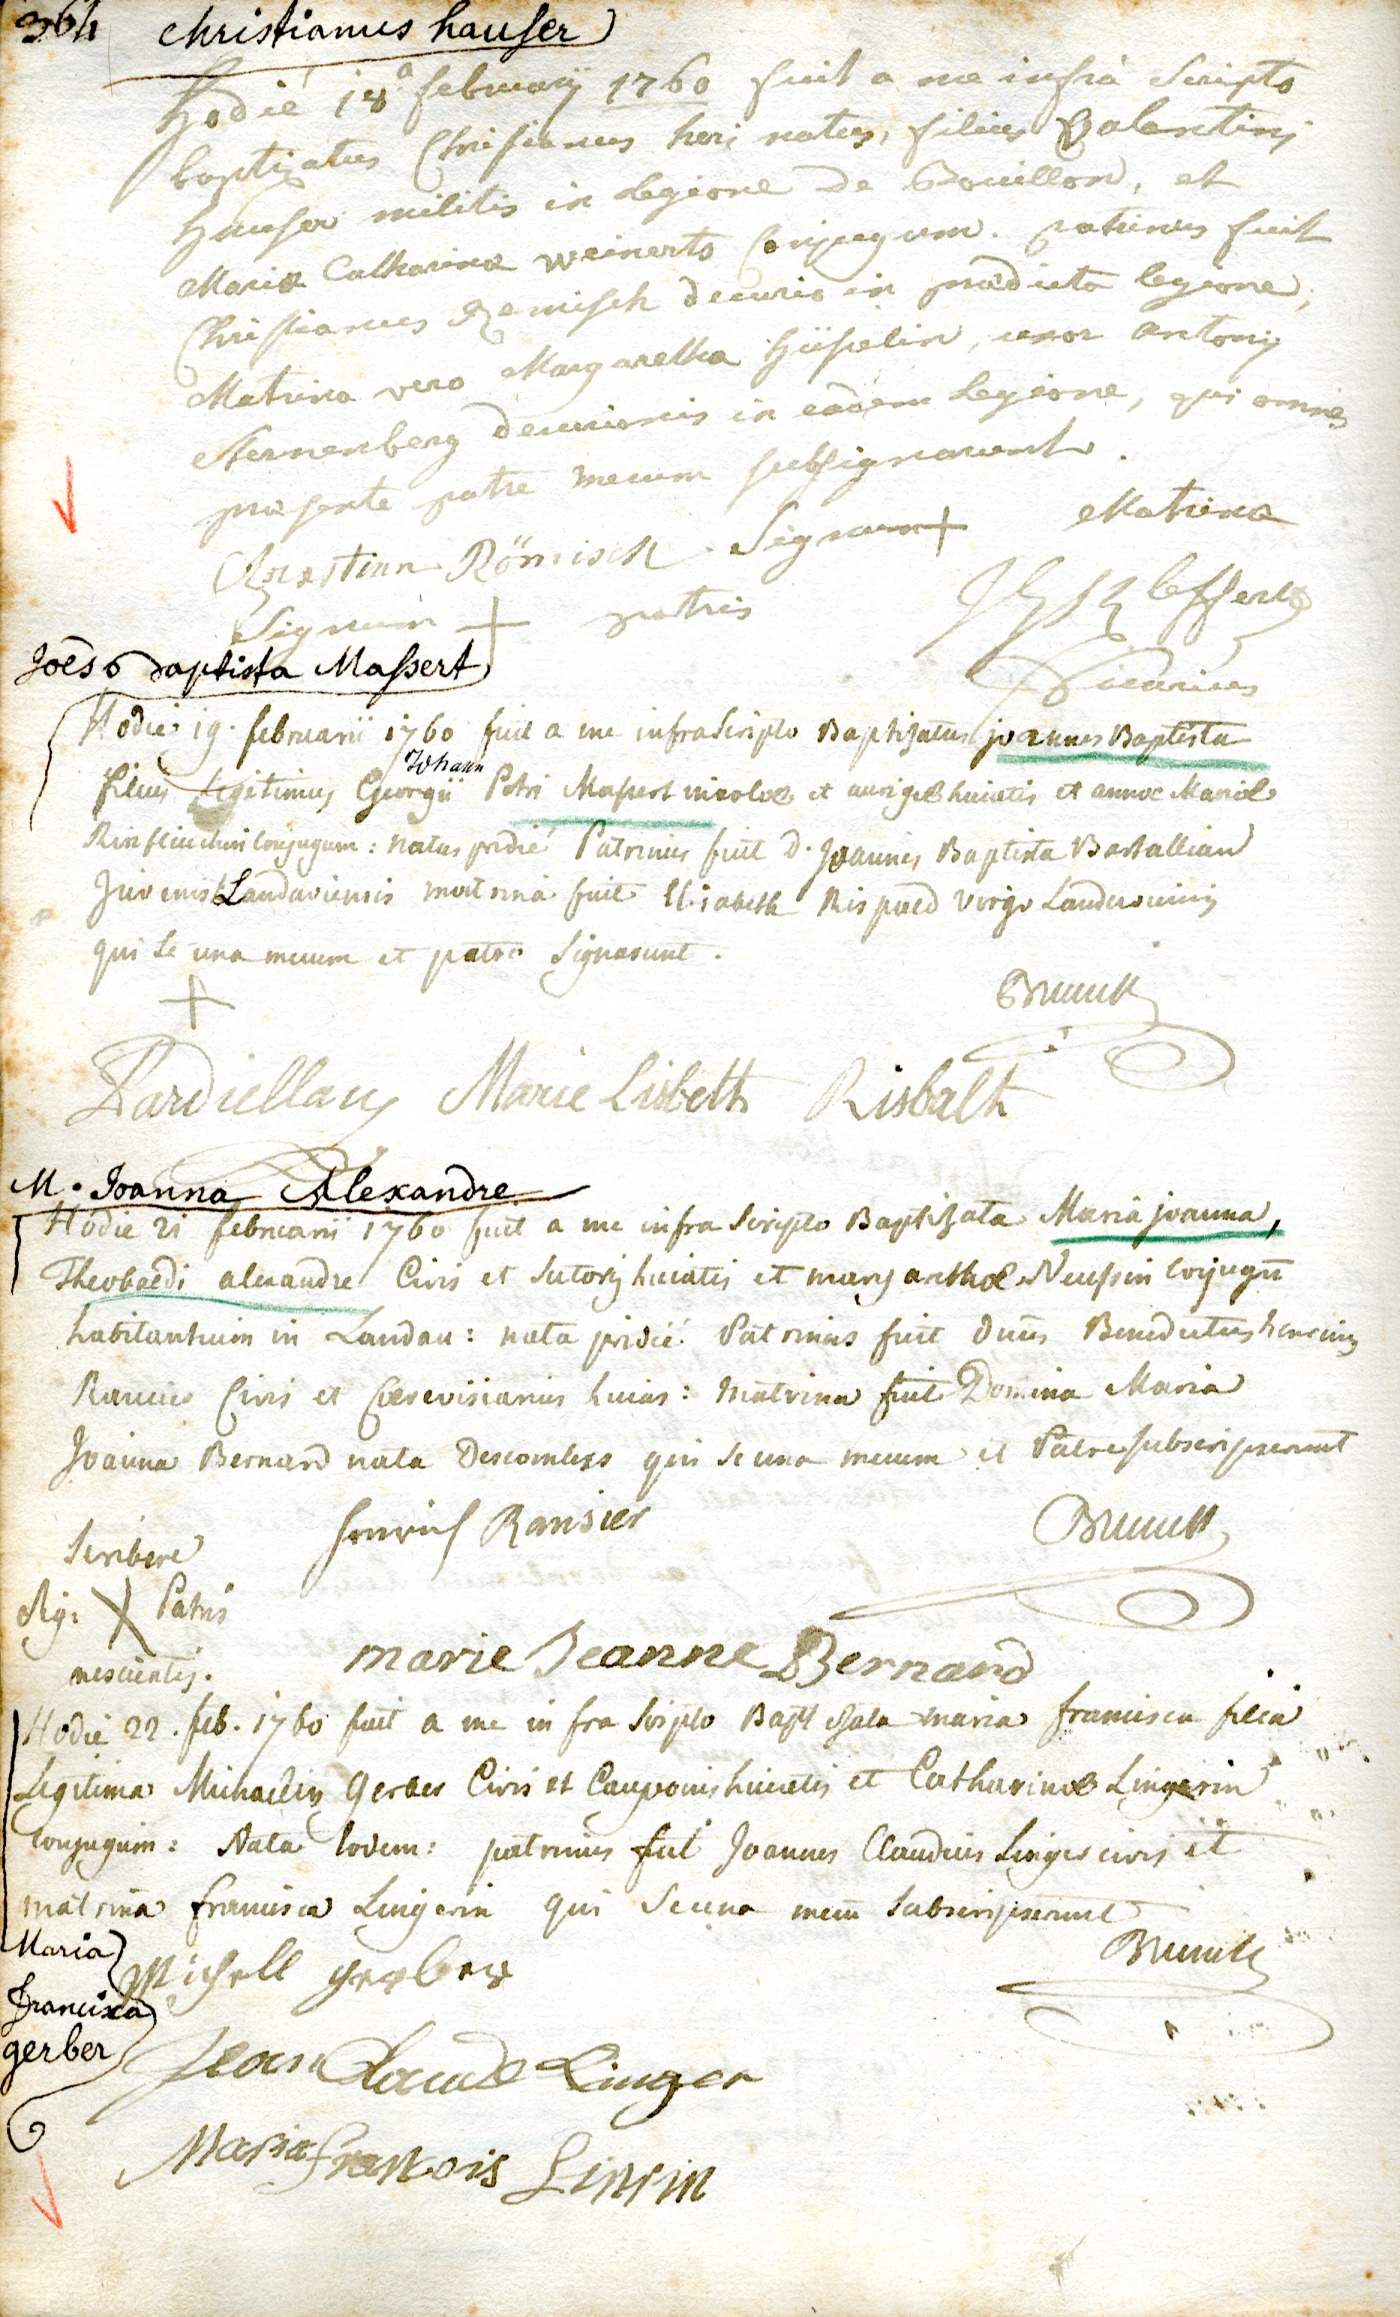 364 Christianus hauser
Hodie 18a february 1760 fuit a me infra scripto
baptizatus Christianus heri natus, filius Valentini
Hauser militis in Legione de Bouillon, et
Mariæ Catharinæ Weinerts Conjugum. patrinus fuit
Christianus Remisch decurio in prædicta legione,
Matrina vero Margaretha Hüselin, uxor Antonij
Sternenberg decurionis in eadem Legione, qui omnes
præsente patre mecum subsignarunt.
Christian Römisch Signum + Matrina
Signum + patris
Vicarius
Joes Baptista Massert
Hodie 19. februarii 1760 fuit a me infrascripto Baptizatus joannes Baptista
Johann
filius Legitimus Georgii Petri Massert incolæ et aurigæ huiatis et annæ Mariæ
conjugum: natus pridie Patrinus fuit d. Joannes Baptista
Juvenis Landaviensis matrina fuit Elisabeth virgo
qui se una mecum et patre signarunt.
+
Brunck
Marie Lisbeth Risbalt
M. Joanna Alexandre
Hodie 21 februarii 1760 fuit a me infra scripto Baptizata Maria joanna,
Theobaldi alexandre Civis et Sutoris huiatis et margarethæ conjugū
habitantium in Landau: nata pridie Patrinus fuit Dnus Benedictus henricus
Civis et Cerevisiarius huias: matrina fuit Domina Maria
Joanna Bernard nata Descombes qui se una mecum et Patre subscripserunt
Scribere Henrich Ransier Brunck
Sig: X Patris
nescientis. marie Jeanne Bernard
Hodie 22. feb. 1760 fuit a me infra scripto Baptizata maria francisca filia
Legitima Michaelis Gerber Civis et Cauponis huiatis et Catharinæ Lingerin
conjugum: Nata eodem: patrinus fuit Joannes Claudius Linger civis et
matrina francisca Lingerin qui se una mecū subscripserunt
Brunck
Maria
Francisca
gerber
Michell gerber
Jean Claude Linger
Maria